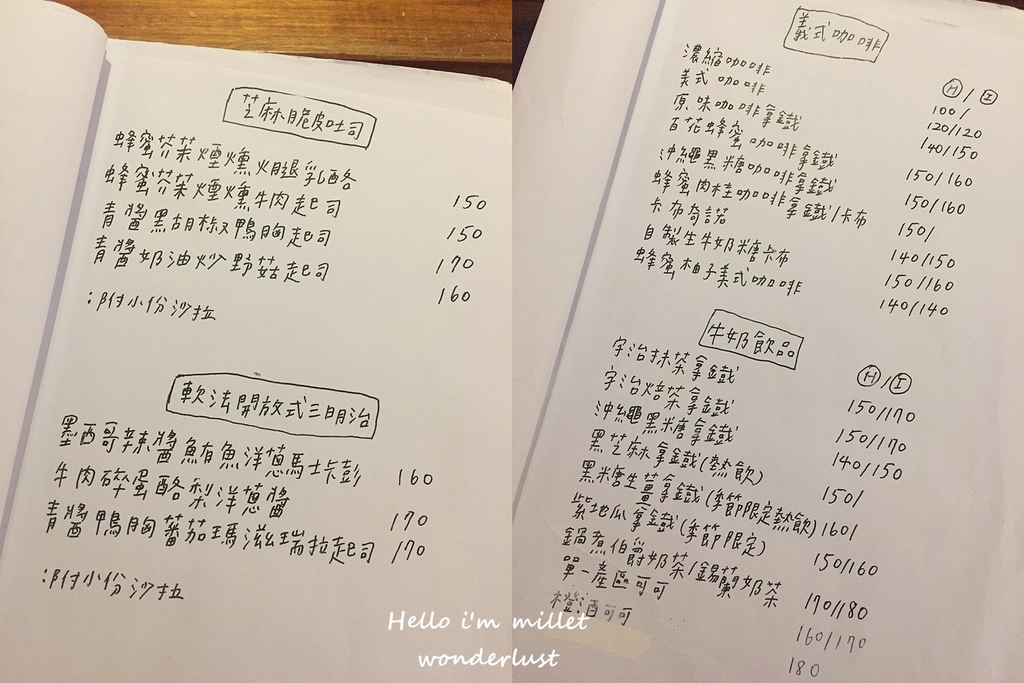 芝麻脆皮吐司
蜂蜜芥茉煙燻火腿乳酪 150
蜂蜜芥茉煙燻牛肉起司 150
青醬黑胡椒鴨胸起司 170
青醬奶油炒野菇起司 160
:附小份沙拉
軟法開放式三明治
墨西哥辣醬鮪魚洋蔥馬士卡彭 160
牛肉碎蛋酪梨洋蔥醬 170
青醬鴨胸蕃茄瑪滋瑞拉起司 170
:附小份沙拉
義式咖啡
H/I
濃縮咖啡 100/
美式咖啡 120/120
原味咖啡拿鐵 140/150
百花蜂蜜咖啡拿鐵 150/160
沖繩黑糖咖啡拿鐵 150/160
蜂蜜肉桂咖啡拿鐵/卡布 150/
卡布奇諾 140/150
自製生牛奶糖卡布 150/160
蜂蜜柚子美式咖啡 140/140
牛奶飲品
H/I
宇治抹茶拿鐵 150/170
宇治焙茶拿鐵 150/170
沖繩黑糖拿鐵 140/150
黑芝麻拿鐵(熱飲) 150/
黑糖生薑拿鐵(季節限定熱飲) 160/
紫地瓜拿鐵(季節限定) 150/160
鍋煮伯爵奶茶/錫蘭奶茶 170/180
單一產區可可 160/170
橙酒可可 180
Hello i'm millet
wonderlust